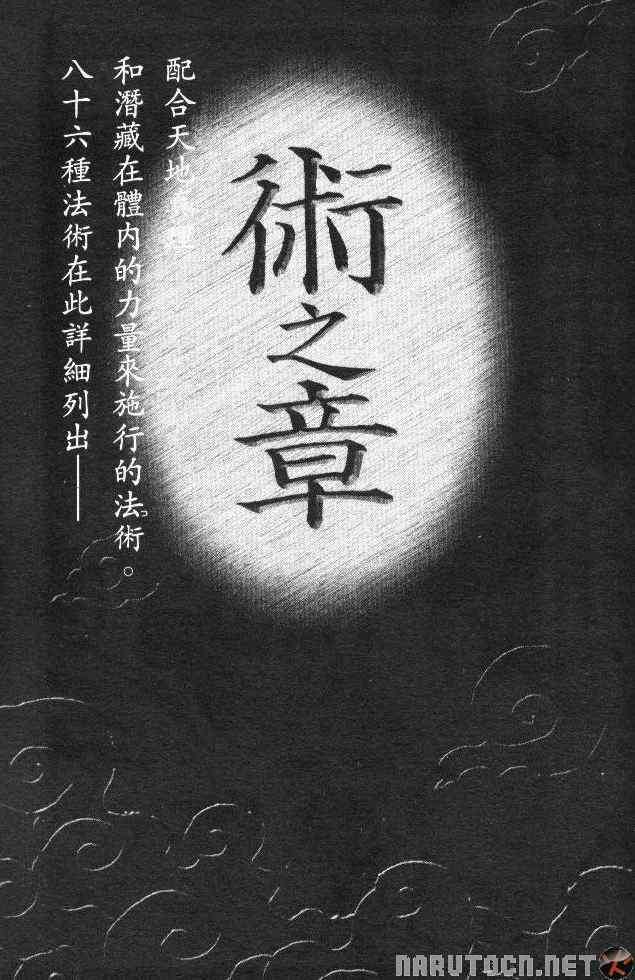 術之章
配合天地真理
和潛藏在體內的力量來施行的法術。
八十六種法術在此詳細列出——
NARUTOCN.NET